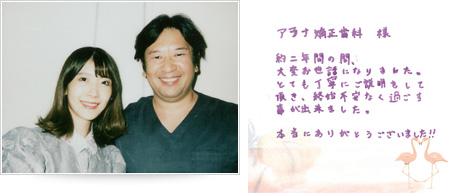 アラナ矯正歯科 様
約二年間の間、
大変お世話になりました。
とても丁寧にご説明をして
頂き、終始不安なく過ごす
事が出来ました。
本当にありがとうございました!!